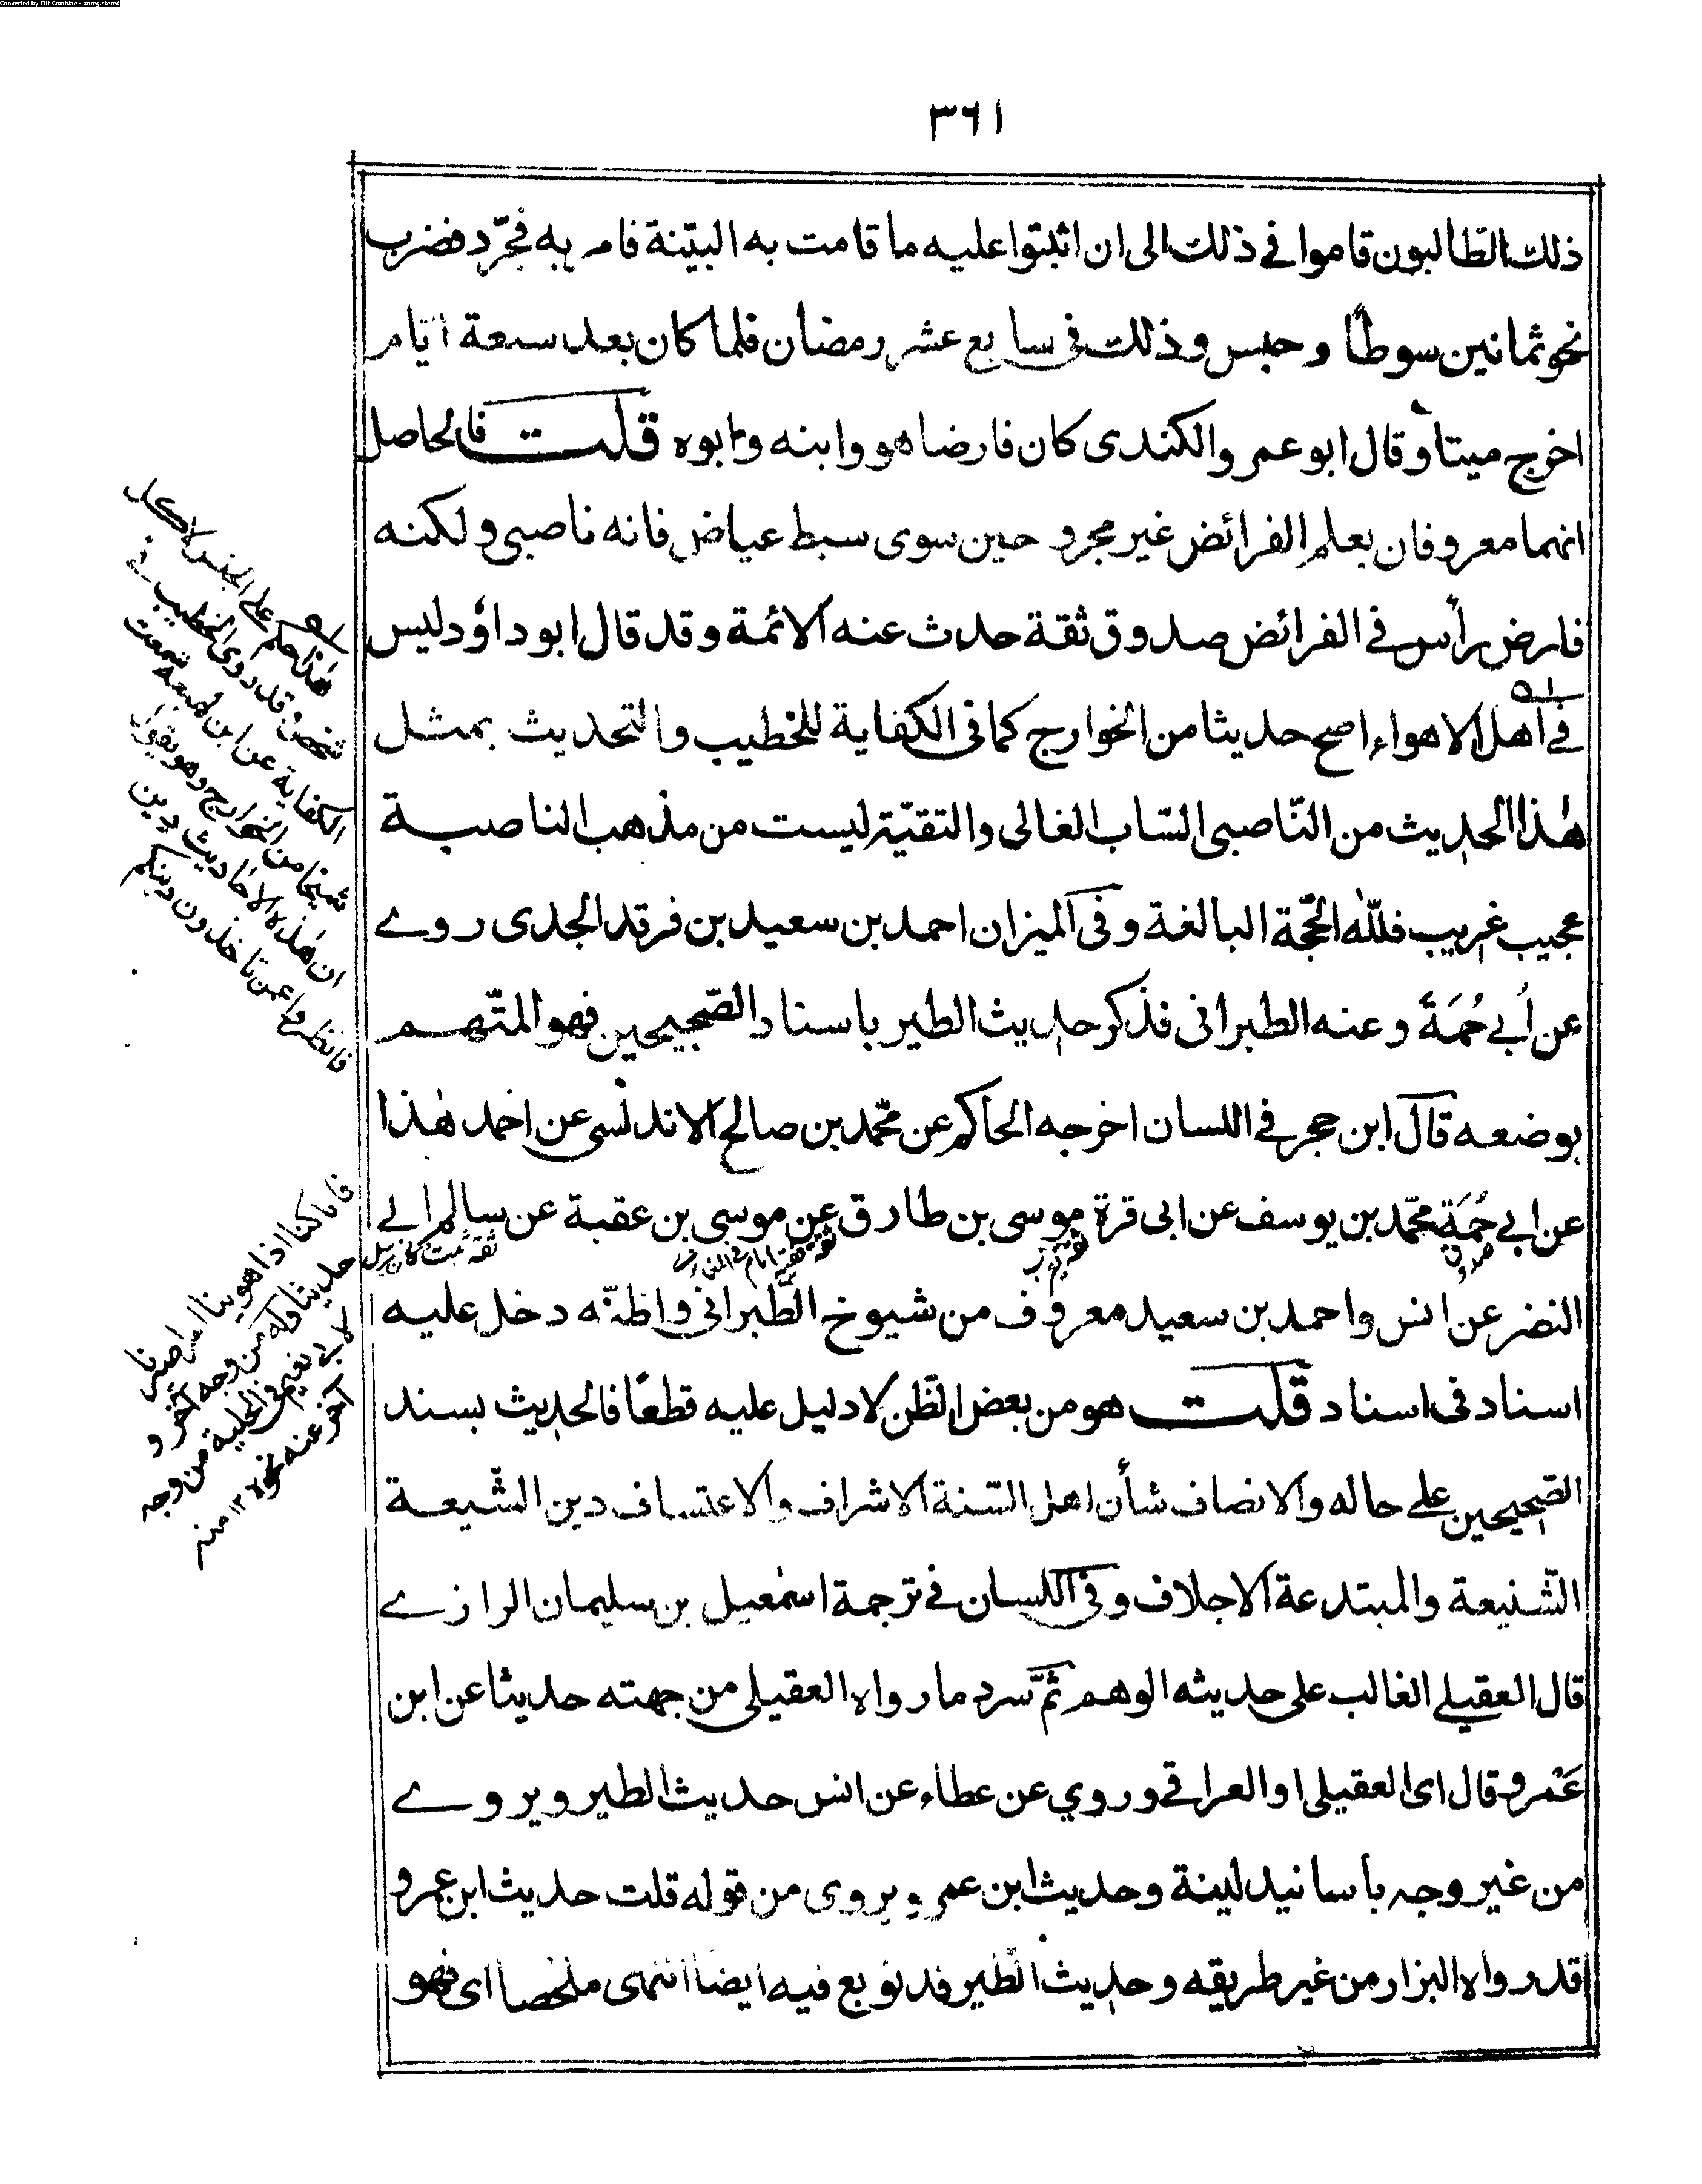 Converted by Tiff Combine - unregistered
٣٦١
ذلك الطالبون قاموا في ذلك الى ان اثبتوا عليه ما قامت به البيّنة فامر به فجرّد فضرب
نحو ثمانين سوطاً وحبس وذلك في سابع عشر رمضان فلما كان بعد سبعة ايام
اخرج ميتا وقال ابو عمر والكندى كان فارضا هو وابنه وابوه قلت فالحاصل
انهما معروفان بعلم الفرائض غير مجروحين سوى سبط عياض فانه ناصبى ولكنه
فارض رأس في الفرائض صدوق ثقة حدث عنه الائمة وقد قال ابو داؤد ليس
في اهل الاهواء اصح حديثا من الخوارج كما فى الكفاية للخطيب والتحديث بمثل
هٰذا الحديث من النّاصبى السّاب الغالى والتقيّة ليست من مذهب الناصبة
عجيب غريب فللّٰه الحجّة البالغة وفى الميزان احمد بن سعيد بن فرقد الجدى روے
عن أبي حُمَةَ وعنه الطبرانى فذكر حديث الطير باسناد الصّحيحين فهو المتّهم
بوضعه قال ابن حجر في اللسان اخرجه الحاكم عن محمّد بن صالح الاندلسى عن احمد هٰذا
عن ابي حُمَة محمّد بن يوسف عن ابى قرة موسى بن طارق عن موسى بن عقبة عن سالم ابي
صدوق
ثقة يغرب
ثقة فقيه امام في المغازى
ثقة ثبت وكان يرسل
النضر عن انس واحمد بن سعيد معروف من شيوخ الطّبرانى واظنّه دخل عليه
اسناد فى اسناد قلت هو من بعض الظّن لا دليل عليه قطعًا فالحديث بسند
الصّحيحين على حاله والانصاف شأن اهل السّنة الاشراف والاعتساف دين الشّيعة
الشّنيعة والمبتدعة الاجلاف وفى اللسان في ترجمة اسمٰعيل بن سليمان الرازے
قال العقيلي الغالب على حديثه الوهم ثمّ سرد ما رواه العقيلى من جهته حديثا عن ابن
عَمرو قال اى العقيلى او العراقي وروي عن عطاء عن انس حديث الطير ويروے
من غير وجه بأسانيد لينة وحديث ابن عمرو يروى من قوله قلت حديث ابن عمرو
قد رواه البزار من غير طريقه وحديث الطير قد توبع فيه ايضا انتهى ملخصا اى فهو
هٰذا حكم على الجنس لا كل
شخص قد روى الخطيب في
الكفاية عن ابن لهيعة سمعت
شيخا من الخوارج وهو يقول
ان هٰذه الاحاديث دين
فانظروا عمن تأخذون دينكم
فانا كنا اذا هوينا امرا صيرناه
حديثا وله من وجه آخر و
لابي نعيم في الحلية من وجه
آخر عنه نحوه ١٢ منه